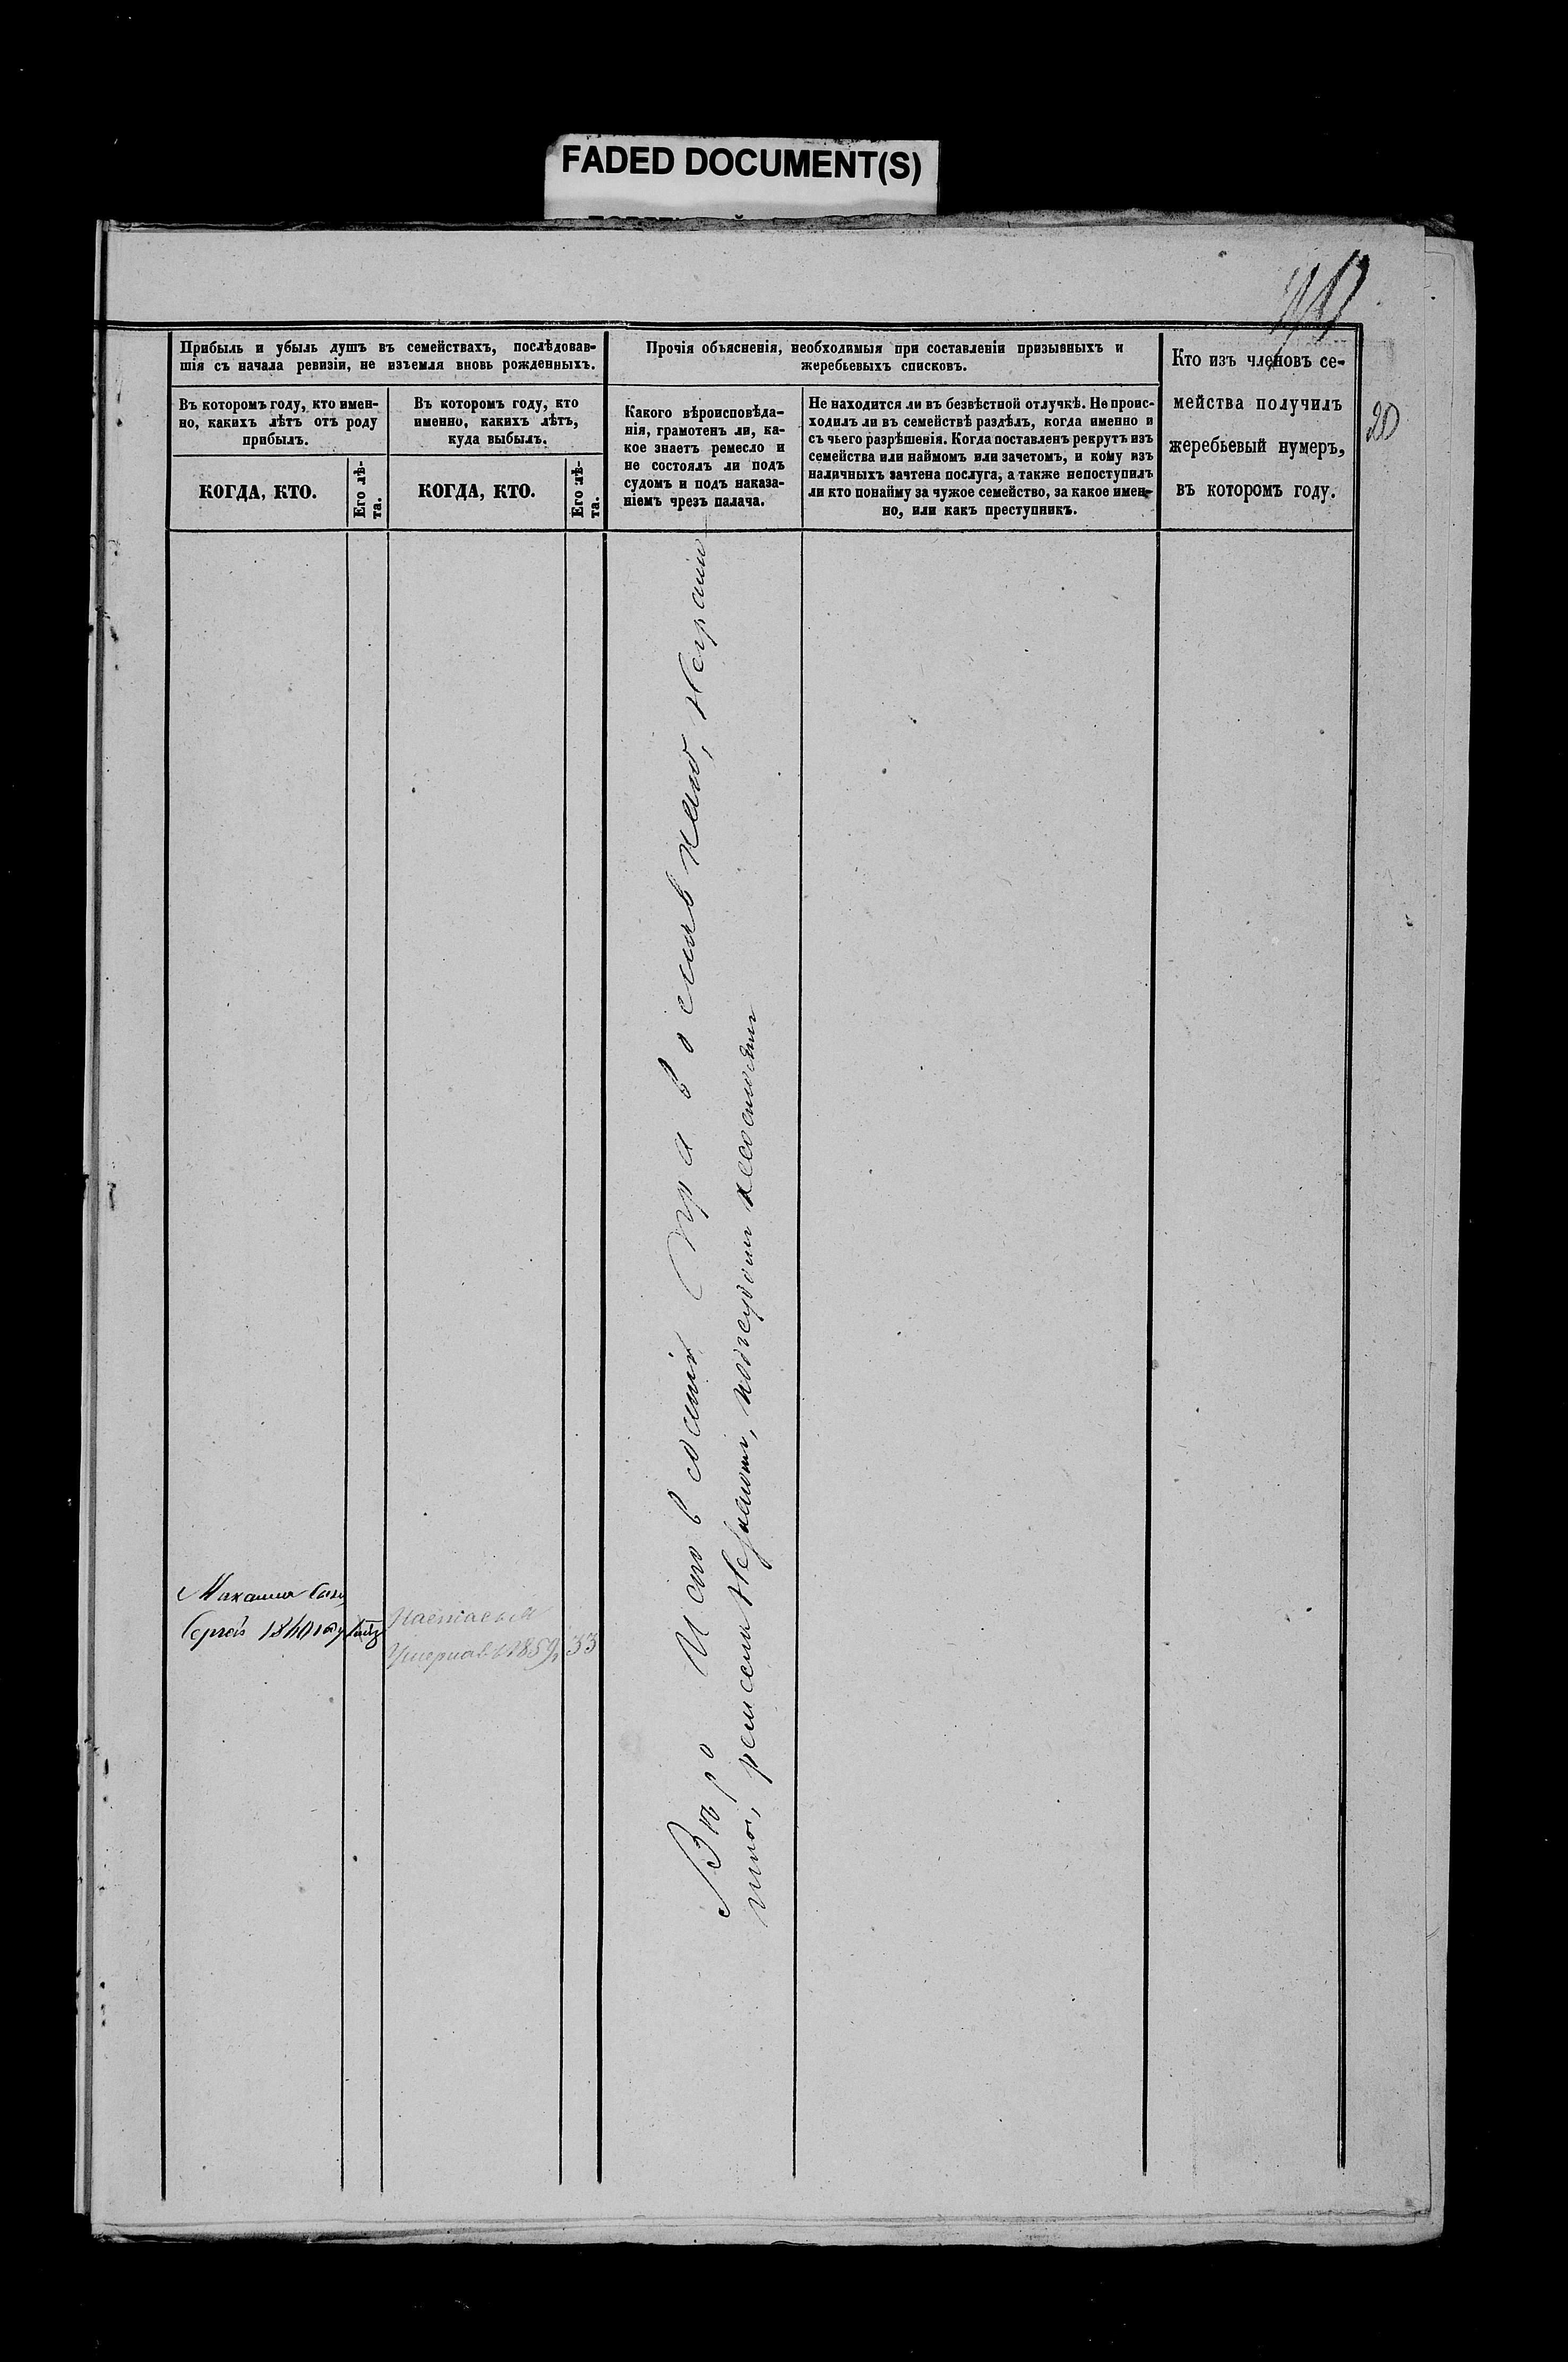 FADED DOCUMENT(S)
20
Прибыль и убыль душъ въ семействахъ, послѣдовав-
шія съ начала ревизіи, не изъемля вновь рожденныхъ.
Въ которомъ году, кто имен-
но, какихъ лѣтъ отъ роду
прибылъ.
КОГДА, КТО.
Его лѣ-
та.
Въ которомъ году, кто
именно, какихъ лѣтъ,
куда выбылъ.
КОГДА, КТО.
Его лѣ-
та.
Прочія объясненія, необходимыя при составленіи призывныхъ и
жеребьевыхъ списковъ.
Какого вѣроисповѣда-
нія, грамотенъ ли, ка-
кое знаетъ ремесло и
не состоялъ ли подъ
судомъ и подъ наказа-
ніемъ чрезъ палача.
Не находится ли въ безвѣстной отлучкѣ. Не проис-
ходилъ ли въ семействѣ раздѣлъ, когда именно и
съ чьего разрѣшенія. Когда поставленъ рекрутъ изъ
семейства или наймомъ или зачетомъ, и кому изъ
наличныхъ зачтена послуга, а также непоступилъ
ли кто понайму за чужое семейство, за какое имен-
но, или какъ преступникъ.
Кто изъ членовъ се-
мейства получилъ
жеребьевый нумеръ,
въ которомъ году.
Сергей 1860 году
1859 33
Веро Исповеданія Православнаго, Неграмо
тна, ремесла Незнаютъ, подсудом несостоятъ